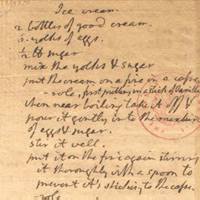 Ice cream.
2 bottles of good cream.
8 yolks of eggs.
1/2 lb sugar
mix the yolks & sugar
put the cream on a fire in a casse-
role, first putting in a stick of Vanilla
when near boiling take it off &
pour it gently into the mixture
of eggs & sugar.
stir it well.
put it on the fire again stirring
it thoroughly with a spoon to
prevent it's sticking to the casse-
role